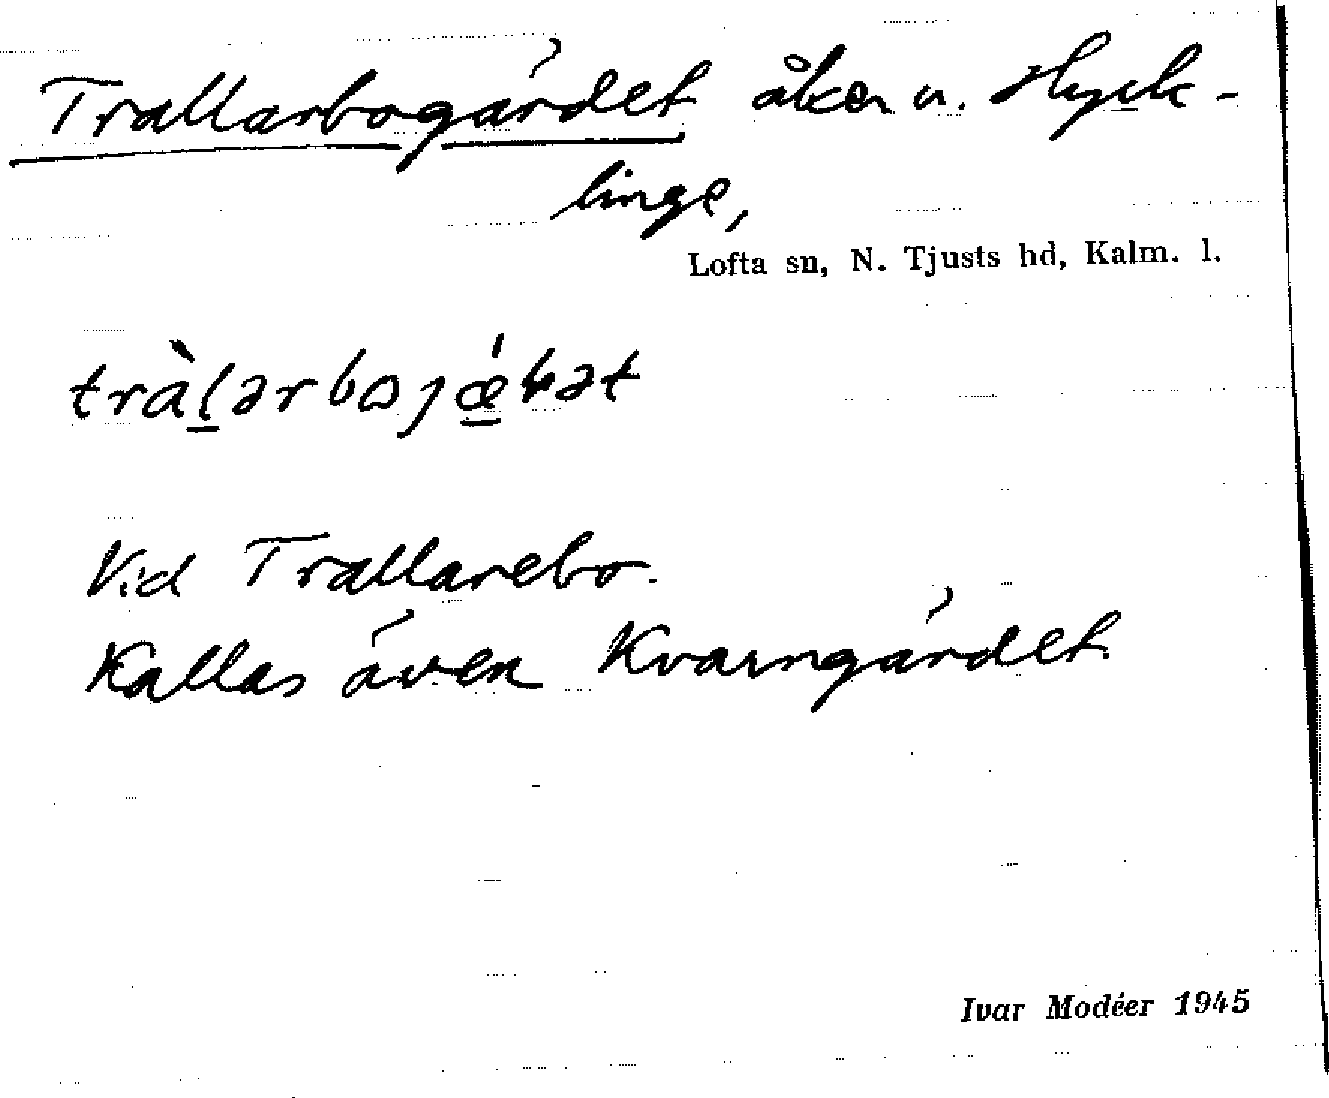 Trallarbogärdet åker u. Hyck-
linge,
Lofta sn, N. Tjusts hd, Kalm. l.
Vid Trallarebo.
Kallas även Kvarngärdet.
Ivar Modéer 1945